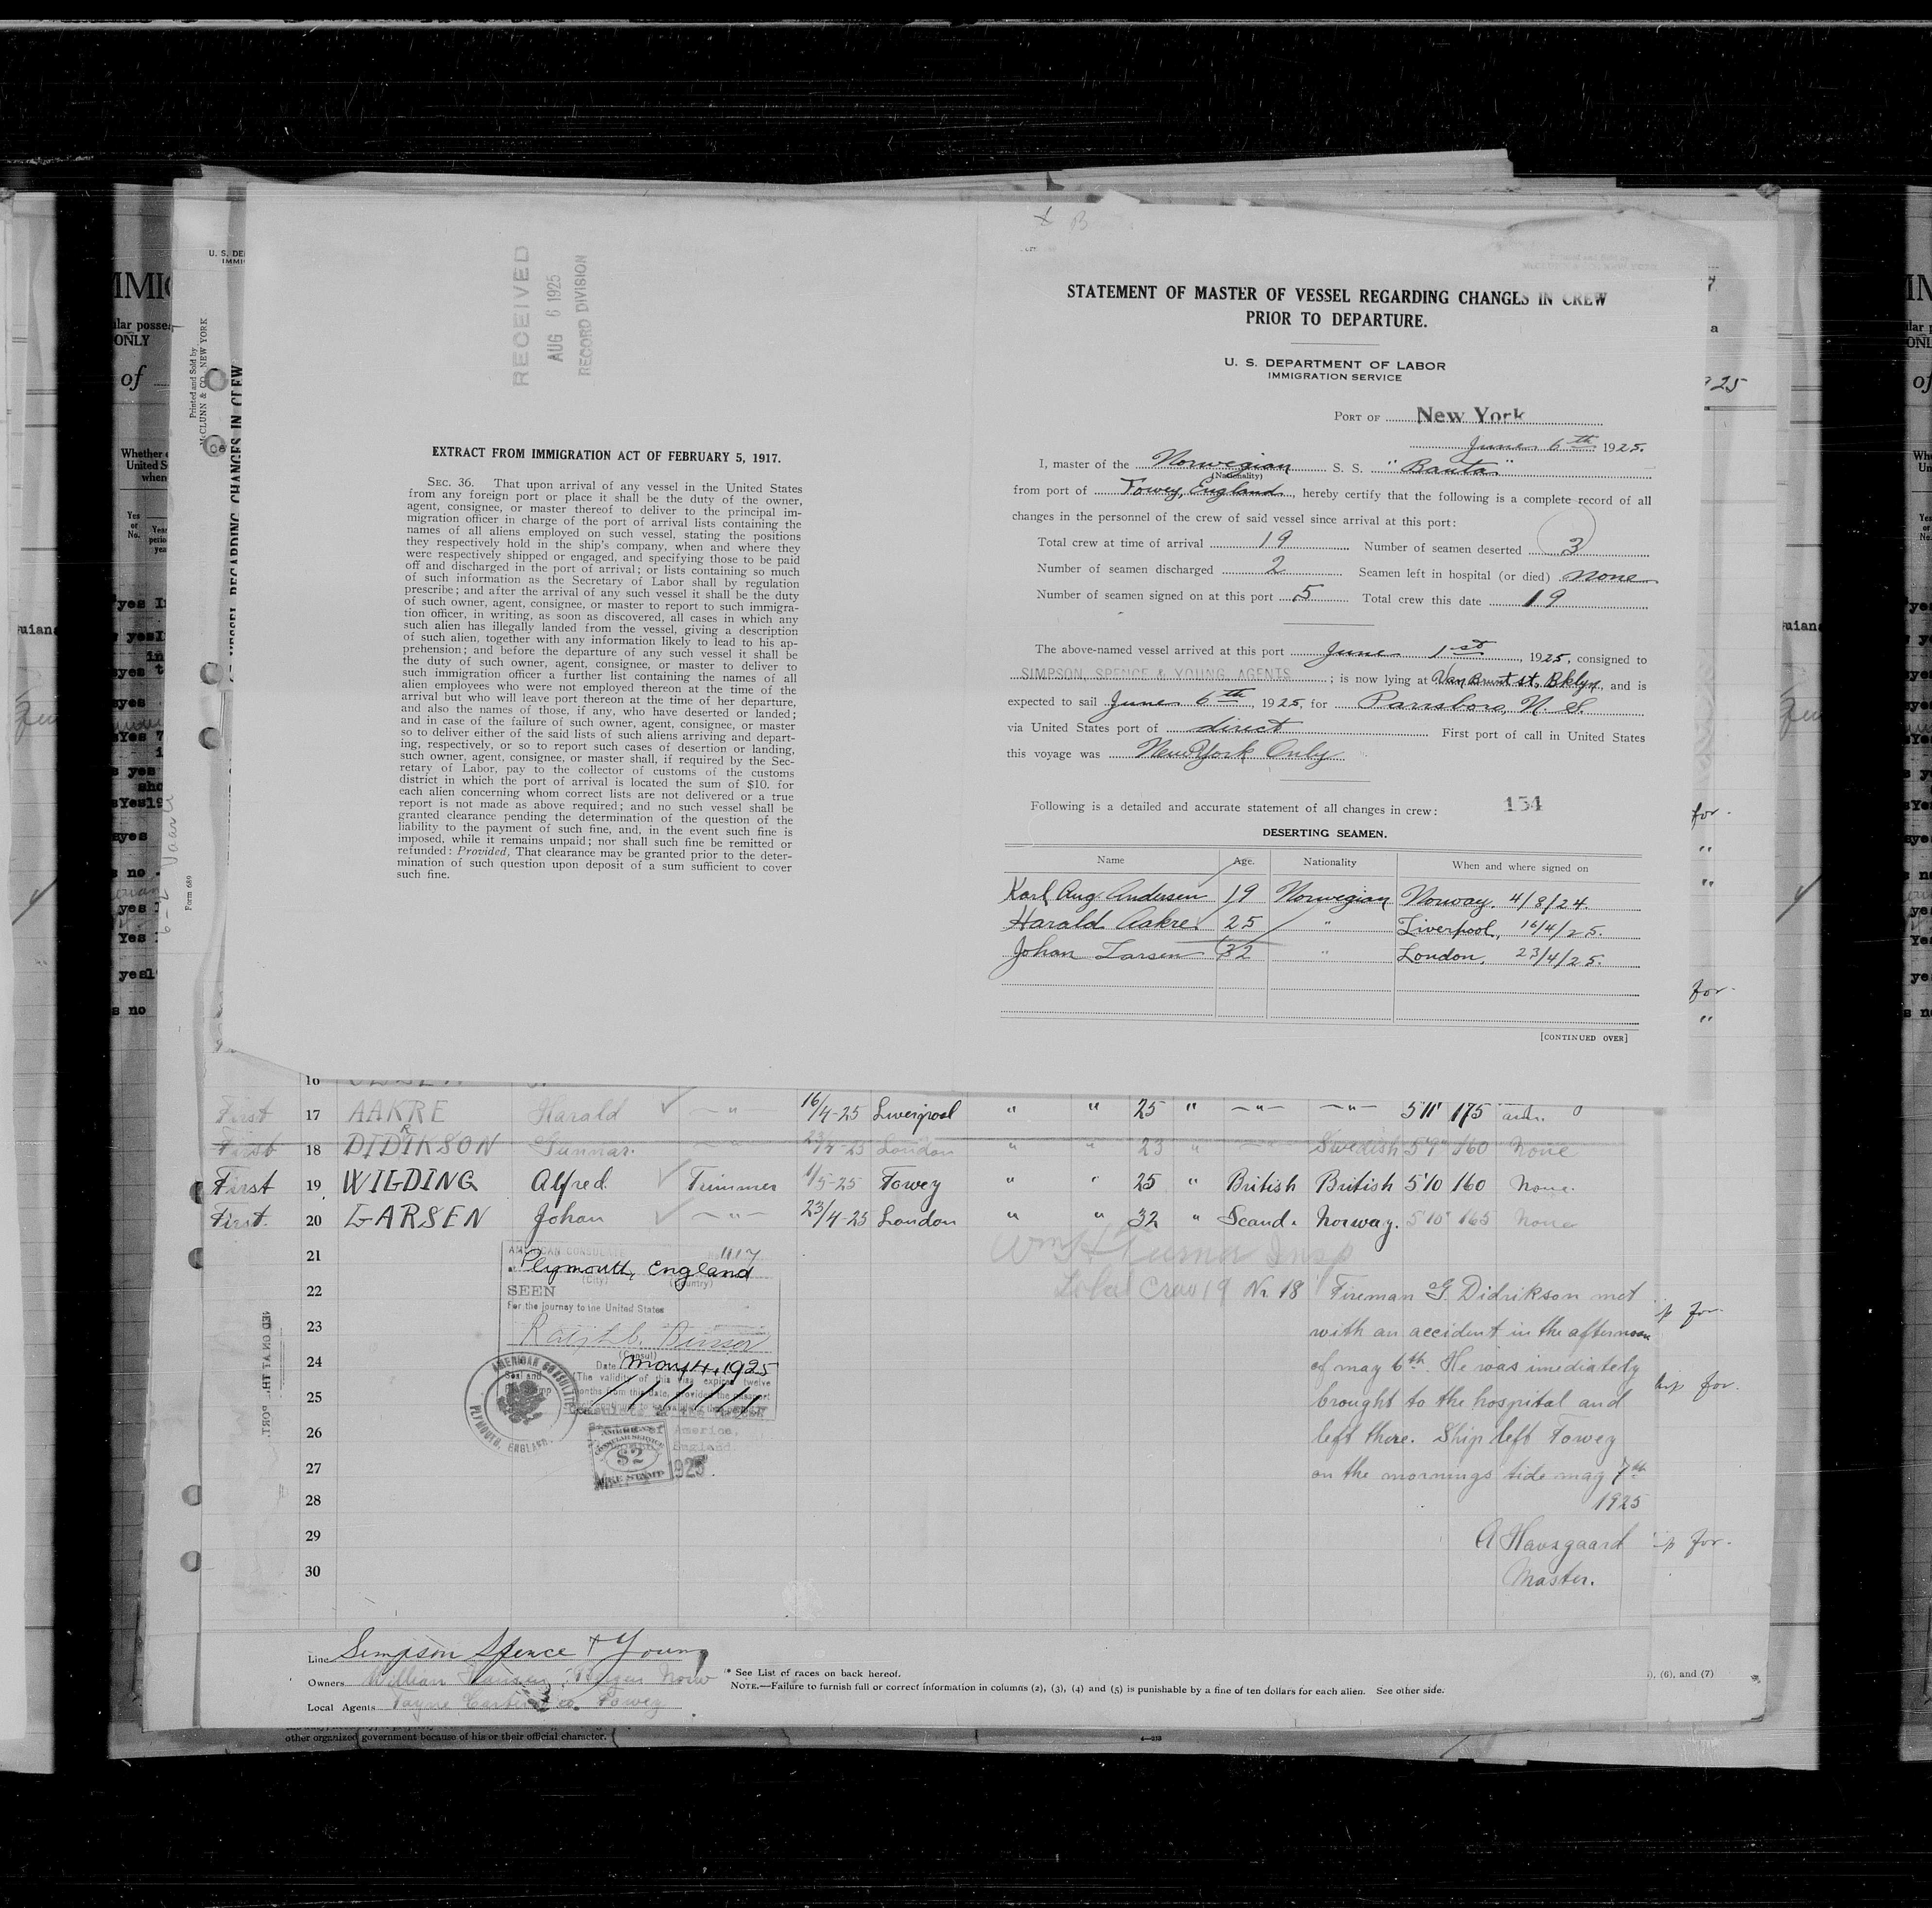 RECEIVED
AUG 6 1925
RECORD DIVISION
EXTRACT FROM IMMIGRATION ACT OF FEBRUARY 5, 1917.
SEC. 36. That upon arrival of any vessel in the United States
from any foreign port or place it shall be the duty of the owner,
agent, consignee, or master thereof to deliver to the principal im-
migration officer in charge of the port of arrival lists containing the
names of all aliens employed on such vessel, stating the positions
they respectively hold in the ship's company, when and where they
were respectively shipped or engaged, and specifying those to be paid
off and discharged in the port of arrival; or lists containing so much
of such information as the Secretary of Labor shall by regulation
prescribe; and after the arrival of any such vessel it shall be the duty
of such owner, agent, consignee, or master to report to such immigra-
tion officer, in writing, as soon as discovered, all cases in which any
such alien has illegally landed from the vessel, giving a description
of such alien, together with any information likely to lead to his ap-
prehension; and before the departure of any such vessel it shall be
the duty of such owner, agent, consignee, or master to deliver to
such immigration officer a further list containing the names of all
alien employees who were not employed thereon at the time of the
arrival but who will leave port thereon at the time of her departure,
and also the names of those, if any, who have deserted or landed;
and in case of the failure of such owner, agent, consignee, or master
so to deliver either of the said lists of such aliens arriving and depart-
ing, respectively, or so to report such cases of desertion or landing,
such owner, agent, consignee, or master shall, if required by the Sec-
retary of Labor, pay to the collector of customs of the customs
district in which the port of arrival is located the sum of $10. for
each alien concerning whom correct lists are not delivered or a true
report is not made as above required; and no such vessel shall be
granted clearance pending the determination of the question of the
liability to the payment of such fine, and, in the event such fine is
imposed, while it remains unpaid; nor shall such fine be remitted or
refunded: Provided, That clearance may be granted prior to the deter-
mination of such question upon deposit of a sum sufficient to cover
such fine.
Printed and Sold by
McCLUNN & CO., NEW YORK
Form 689
STATEMENT OF MASTER OF VESSEL REGARDING CHANGES IN CREW
PRIOR TO DEPARTURE.
U. S. DEPARTMENT OF LABOR
IMMIGRATION SERVICE
PORT OF New York
June 6th 1925.
I, master of the Norwegian S. S. "Bauta"
(Nationality)
from port of Fowey, England, hereby certify that the following is a complete record of all
changes in the personnel of the crew of said vessel since arrival at this port:
Total crew at time of arrival 19 Number of seamen deserted 3
Number of seamen discharged 2 Seamen left in hospital (or died) None
Number of seamen signed on at this port 5 Total crew this date 19
The above-named vessel arrived at this port June 1st, 1925, consigned to
SIMPSON, SPENCE & YOUNG, AGENTS; is now lying at Van Brunt st, Bklyn, and is
expected to sail June 6th, 1925, for Parrsboro, N. S.
via United States port of direct First port of call in United States
this voyage was New York Only
Following is a detailed and accurate statement of all changes in crew: 154
DESERTING SEAMEN.
Name Age. Nationality When and where signed on
Karl Aug. Andersen 19 Norwegian Norway. 4/8/24.
Harald Aakre 25 " Liverpool, 16/4/25.
Johan Larsen 32 " London, 23/4/25.
[CONTINUED OVER]
16
First 17 AAKRE Harald ✓ —"— 16/4-25 Liverpool " " 25 " —"— —"— 5'11" 175
First 18 DIDRIKSON Gunnar. —"— 23/4-25 London " " 23 " —"— Swedish 5'9" 160 None
First 19 WILDING Alfred ✓ Trimmer 1/5-25 Fowey " " 25 " British British 5'10 160 None.
First. 20 LARSEN Johan ✓ —"— 23/4-25 London " " 32 " Scand. Norway. 5'10" 165 None
21
22
23
24
25
26
27
28
29
30
AMERICAN CONSULATE
Plymouth, England
(City) (Country)
SEEN
For the journey to the United States
(Consul)
Date May 4, 1925
AMERICAN CONSULATE
PLYMOUTH, ENGLAND.
$2
1925
Wm H Turner Insp
Total Crew 19
Nr 18 Fireman G. Didrikson met
with an accident in the afternoon
of may 6th. He was imediately
brought to the hospital and
left there. Ship left Fowey
on the mornings tide may 7th
1925
A Havsgaard
Master.
Line Simpson Spence & Young
Owners William Hansen, Bergen Norw
Local Agents Toyne Carter & co. Fowey
* See List of races on back hereof.
NOTE.—Failure to furnish full or correct information in columns (2), (3), (4) and (5) is punishable by a fine of ten dollars for each alien. See other side.
other organized government because of his or their official character.